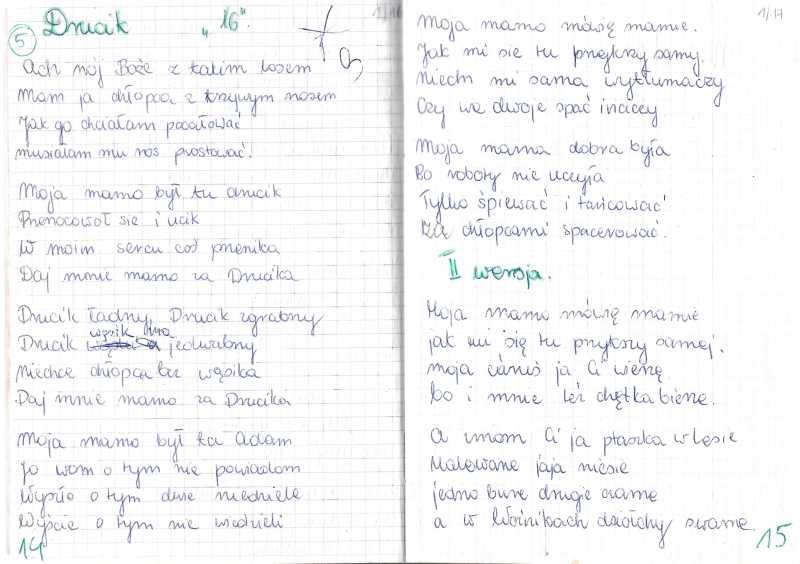 5 Drucik "16".
Ach mój Boże z takim losem
Mam ja chłopca z krzywym nosem
Jak go chciałam pocałować
musiałam mu nos prostować!
Moja mamo był tu drucik
Przenocowoł się i ucik
W moim sercu coś przenika
Daj mnie mamo za Drucika
Drucik ładny, Drucik zgrabny
Drucik wąsik ma jedwabny
Niechce chłopca bez wąsika
Daj mnie mamo za Drucika
Moja mamo był tu Adam
Jo wom o tym nie powiadom
Wyszło o tym dwie niedziele
Wyście o tym nie wiedzieli
14
1/17
Moja mamo mówię mamie.
Jak mi sie tu przykrzy samy.
Niech mi sama wytłumaczy
Czy we dwoje spać inaczy
Moja mama dobra była
Bo roboty nie uczyła
Tylko śpiewać i tańcować
Za chłopcami spacerować.
II wersja.
Moja mamo mówię mamie
jak mi się tu przykszy samej.
moja cáruś ja Ci wierzę
bo i mnie też chętka bierze.
A mom Ci ja ptaszka w lesie
Malowane jaja niesie
jedno bure drugie czarne
a w Woźnikach dziołchy swarne
15